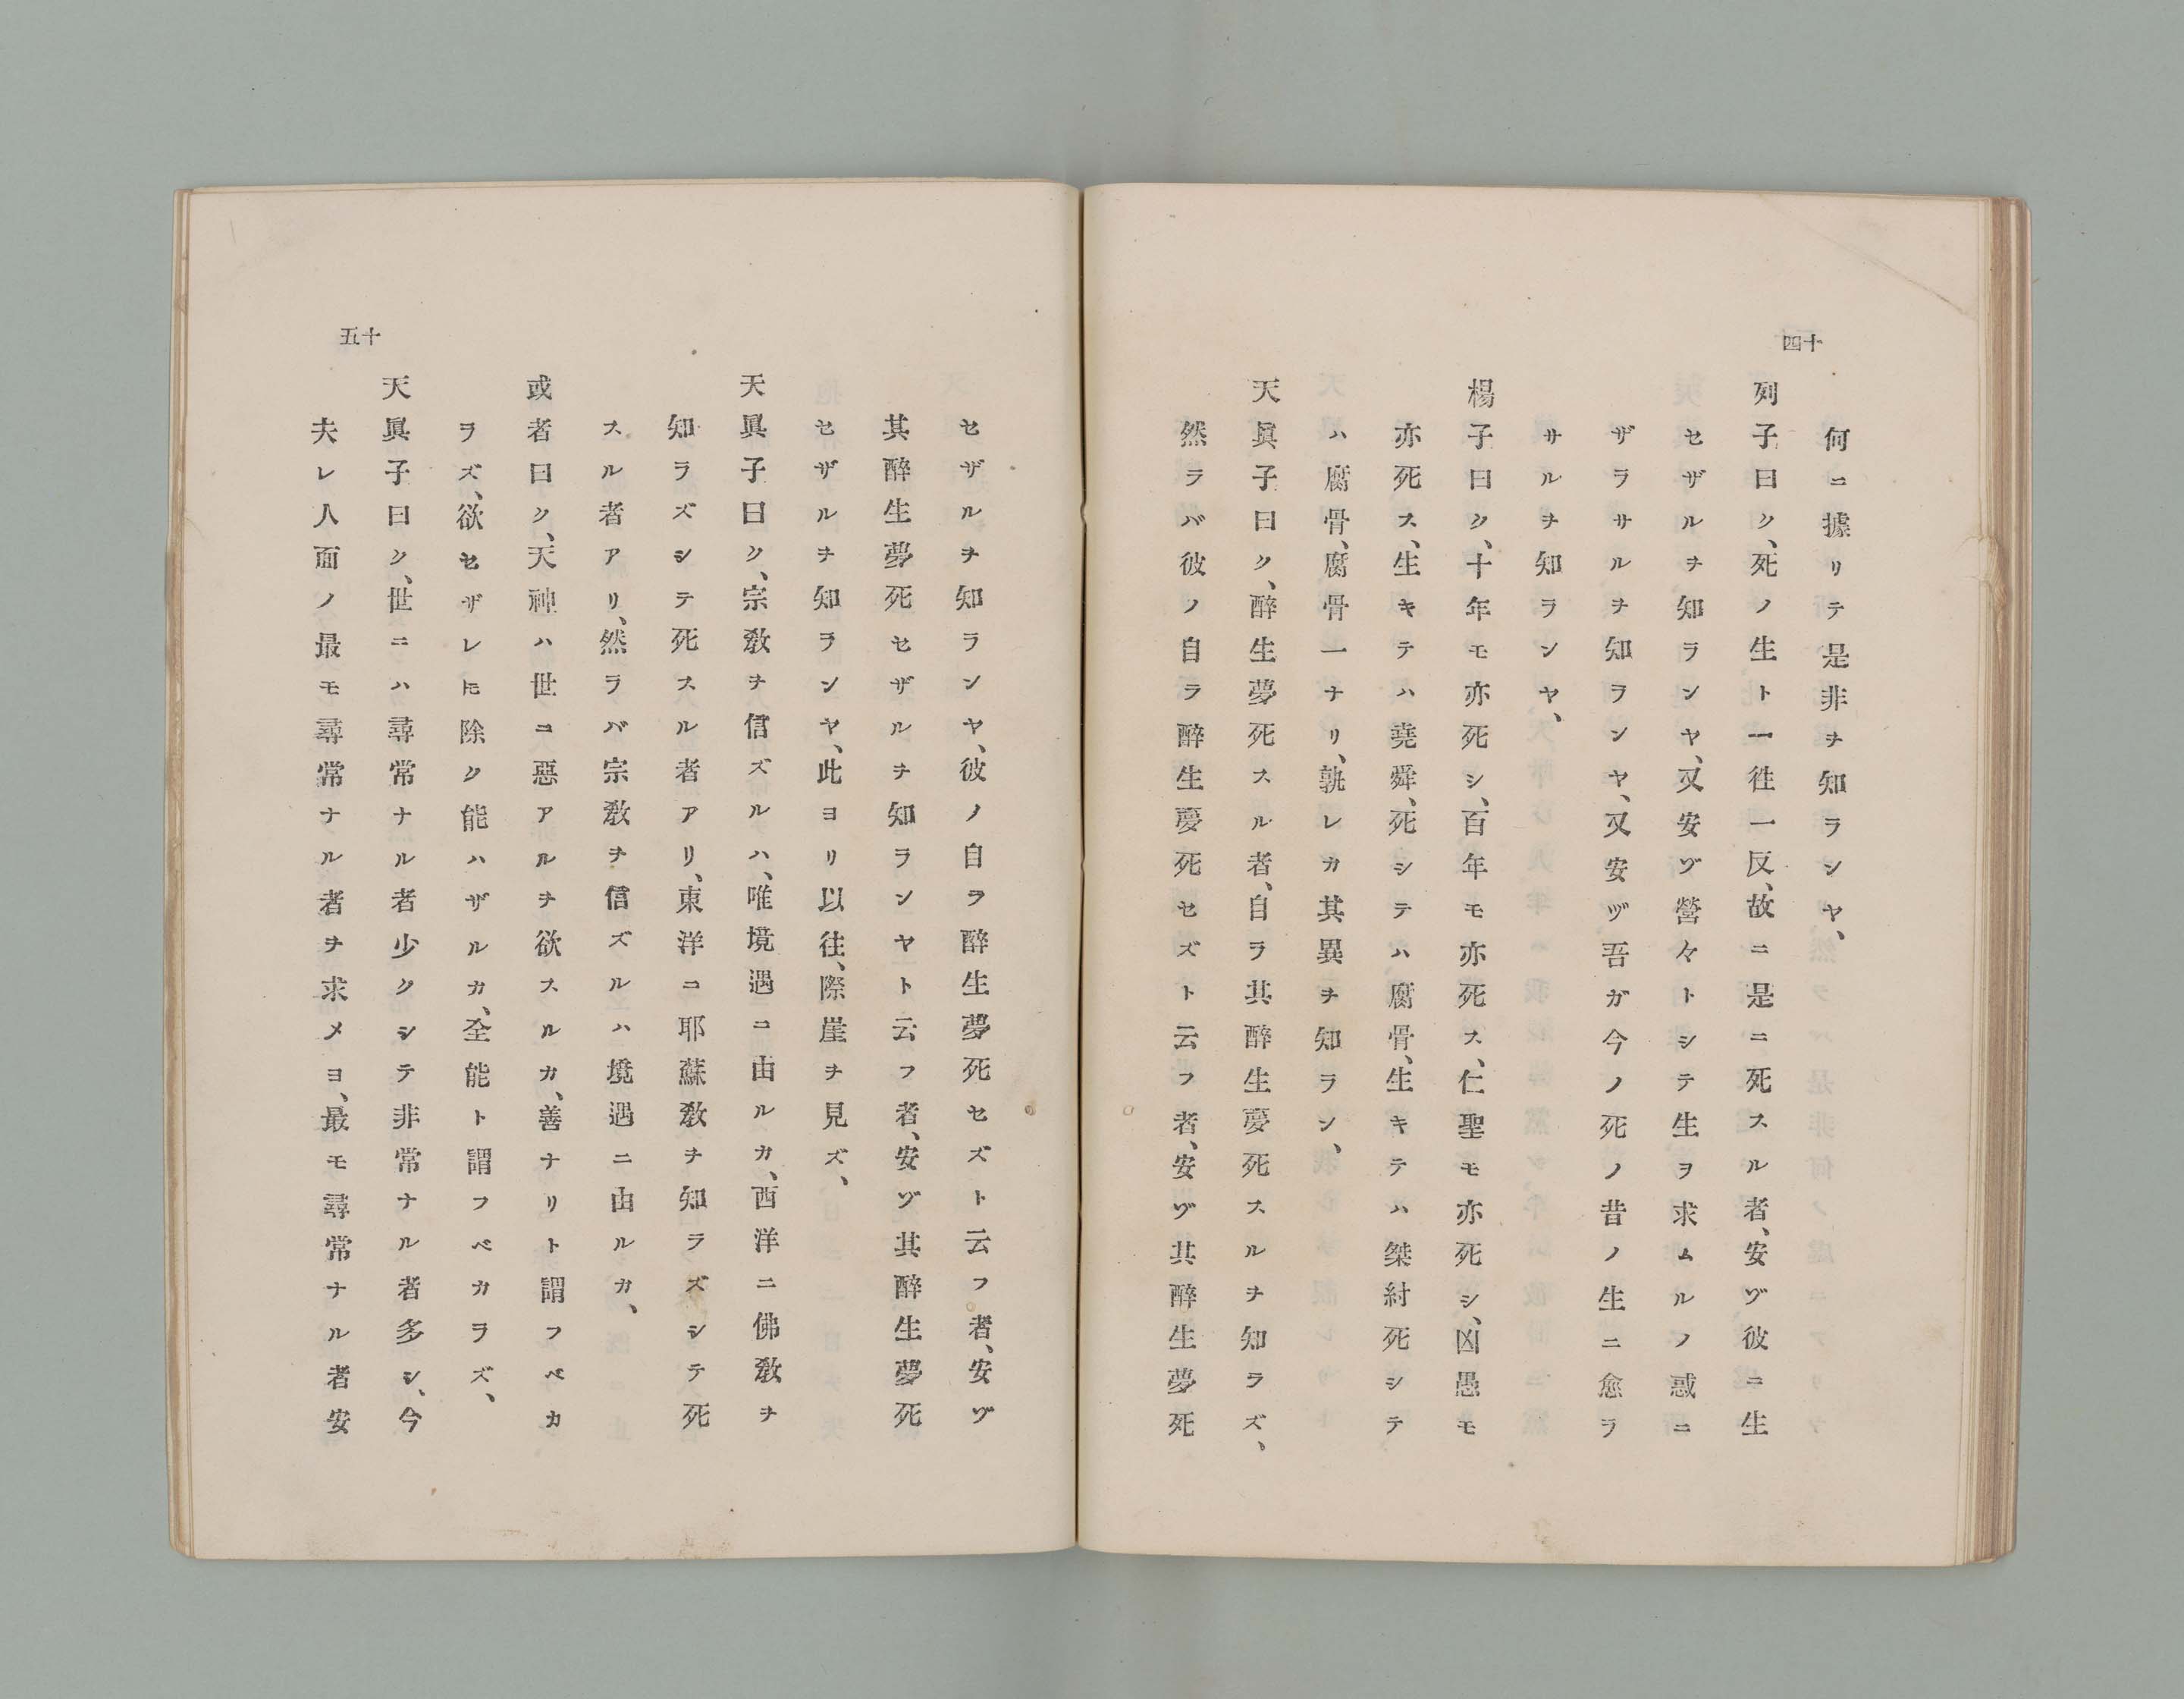 十四
何ニ據リテ是非ヲ知ランヤ、
列子曰ク、死ノ生ト一徃一反、故ニ是ニ死スル者、安ヅ彼ニ生
セザルヲ知ランヤ、又安ヅ營々トシテ生ヲ求ムルノ惑ニ
ザラサルヲ知ランヤ、又安ヅ吾ガ今ノ死ノ昔ノ生ニ愈ラ
サルヲ知ランヤ、
楊子曰ク、十年モ亦死シ、百年モ亦死ス、仁聖モ亦死シ、凶愚モ
亦死ス、生キテハ堯舜、死シテハ腐骨、生キテハ桀紂死シテ
ハ腐骨、腐骨一ナリ、孰レカ其異ヲ知ラン、
天眞子曰ク、醉生夢死スル者、自ラ其醉生夢死スルヲ知ラズ、
然ラバ彼ノ自ラ醉生夢死セズト云フ者、安ヅ其醉生夢死
十五
セザルヲ知ランヤ、彼ノ自ラ醉生夢死セズト云フ者、安ヅ
其醉生夢死セザルヲ知ランヤト云フ者、安ヅ其醉生夢死
セザルヲ知ランヤ、此ヨリ以往、際崖ヲ見ズ、
天眞子曰ク、宗敎ヲ信ズルハ、唯境遇ニ由ルカ、西洋ニ佛敎ヲ
知ラズシテ死スル者アリ、東洋ニ耶蘇敎ヲ知ラズシテ死
スル者アリ、然ラバ宗敎ヲ信ズルハ境遇ニ由ルカ、
或者曰ク、天神ハ世ニ惡アルヲ欲スルカ、善ナリト謂フベカ
ラズ、欲セザレ𪜈除ク能ハザルカ、全能ト謂フベカラズ、
天眞子曰ク、世ニハ尋常ナル者少クシテ非常ナル者多シ、今
夫レ人面ノ最モ尋常ナル者ヲ求メヨ、最モ尋常ナル者安